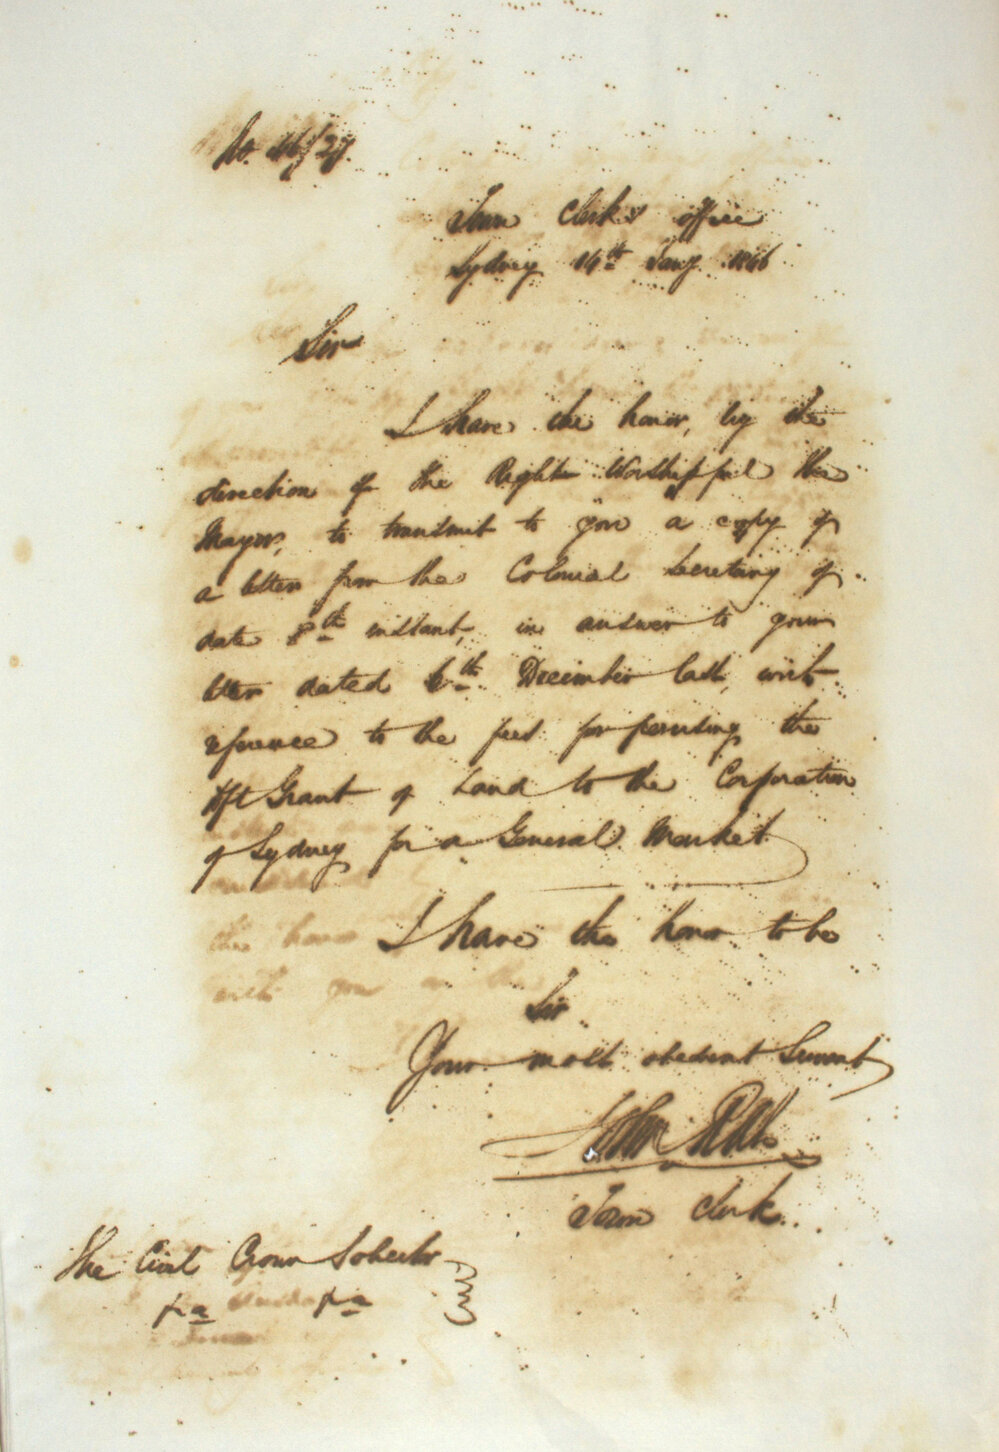 No. 46/27.
Town Clerk's Office
Sydney 14th Jany 1846
Sir
I have the honor, by the
direction of the Right Worshipful the
Mayor, to transmit to you a copy of
a letter from the Colonial Secretary of
date 8th instant, in answer to your
letter dated 6th December last, with
reference to the fees for perusing the
Grant of Land to the Corporation
of Sydney for a General Market
I have the honor to be
Sir
Your most obedient Servant
John Rae
Town Clerk.
The Civil Crown Solicitor